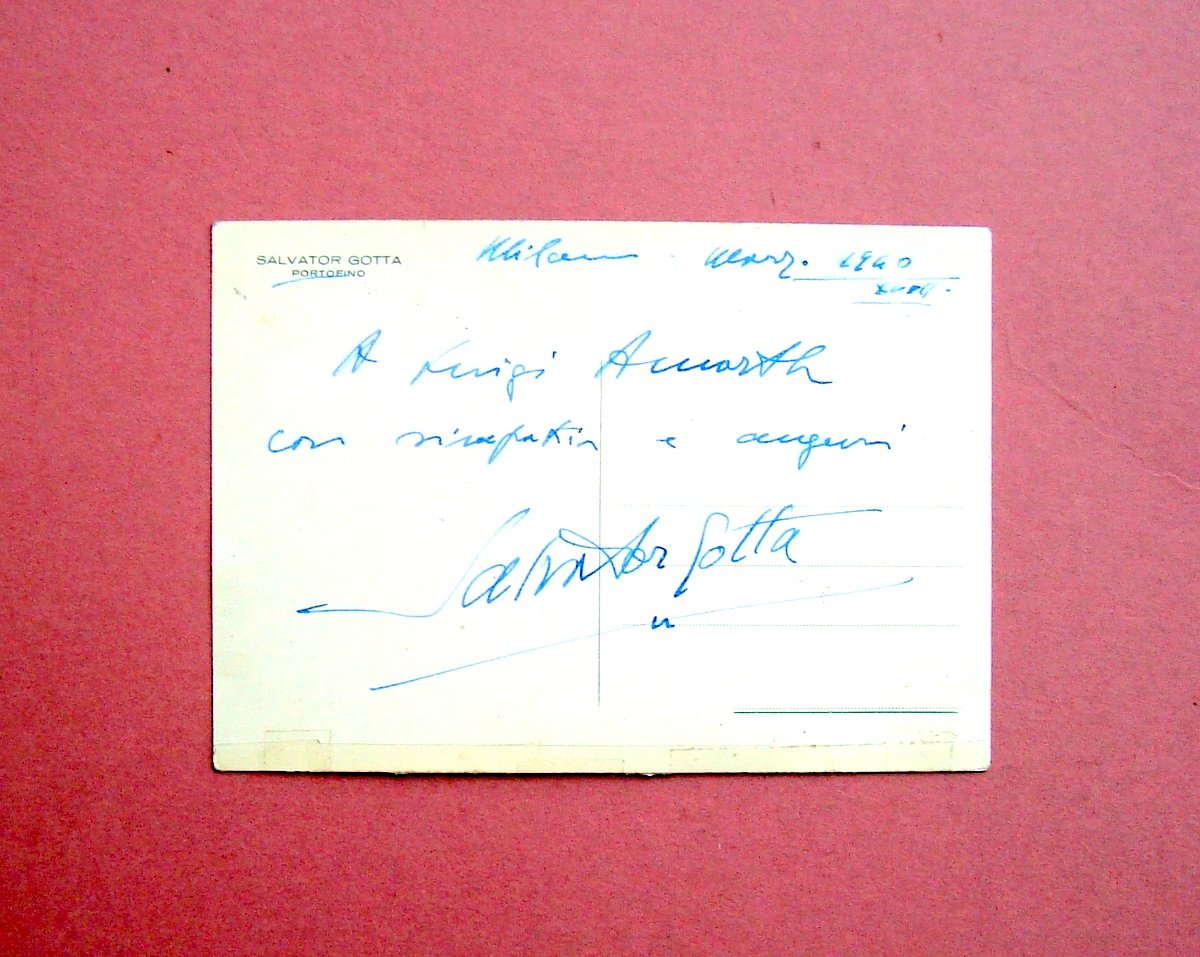 SALVATOR GOTTA
PORTOFINO
Milano Marz. 1940
XVIII.
A Luigi Amorth
con simpatia e auguri
Salvator Gotta